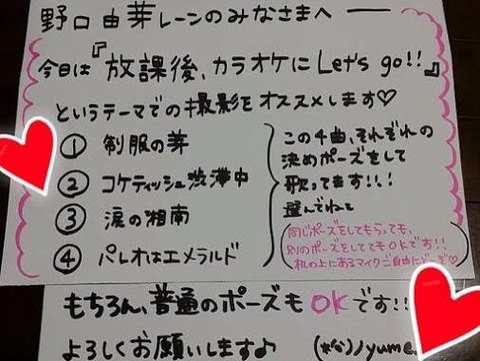 野口由芽レーンのみなさまへ ー
今日は『放課後、カラオケに Let's go!!』
というテーマでの撮影をオススメします♡
① 制服の芽
② コケティッシュ渋滞中
③ 涙の湘南
④ パレオはエメラルド
この4曲、それぞれの
決めポーズをして
歌ってます!!!
選んでねっ
(同じポーズをしてもらっても、
別のポーズをしててもOKです!!
机の上にあるマイクご自由にどーぞ♡
もちろん、普通のポーズも OKです!!
よろしくお願いします♪ yume.